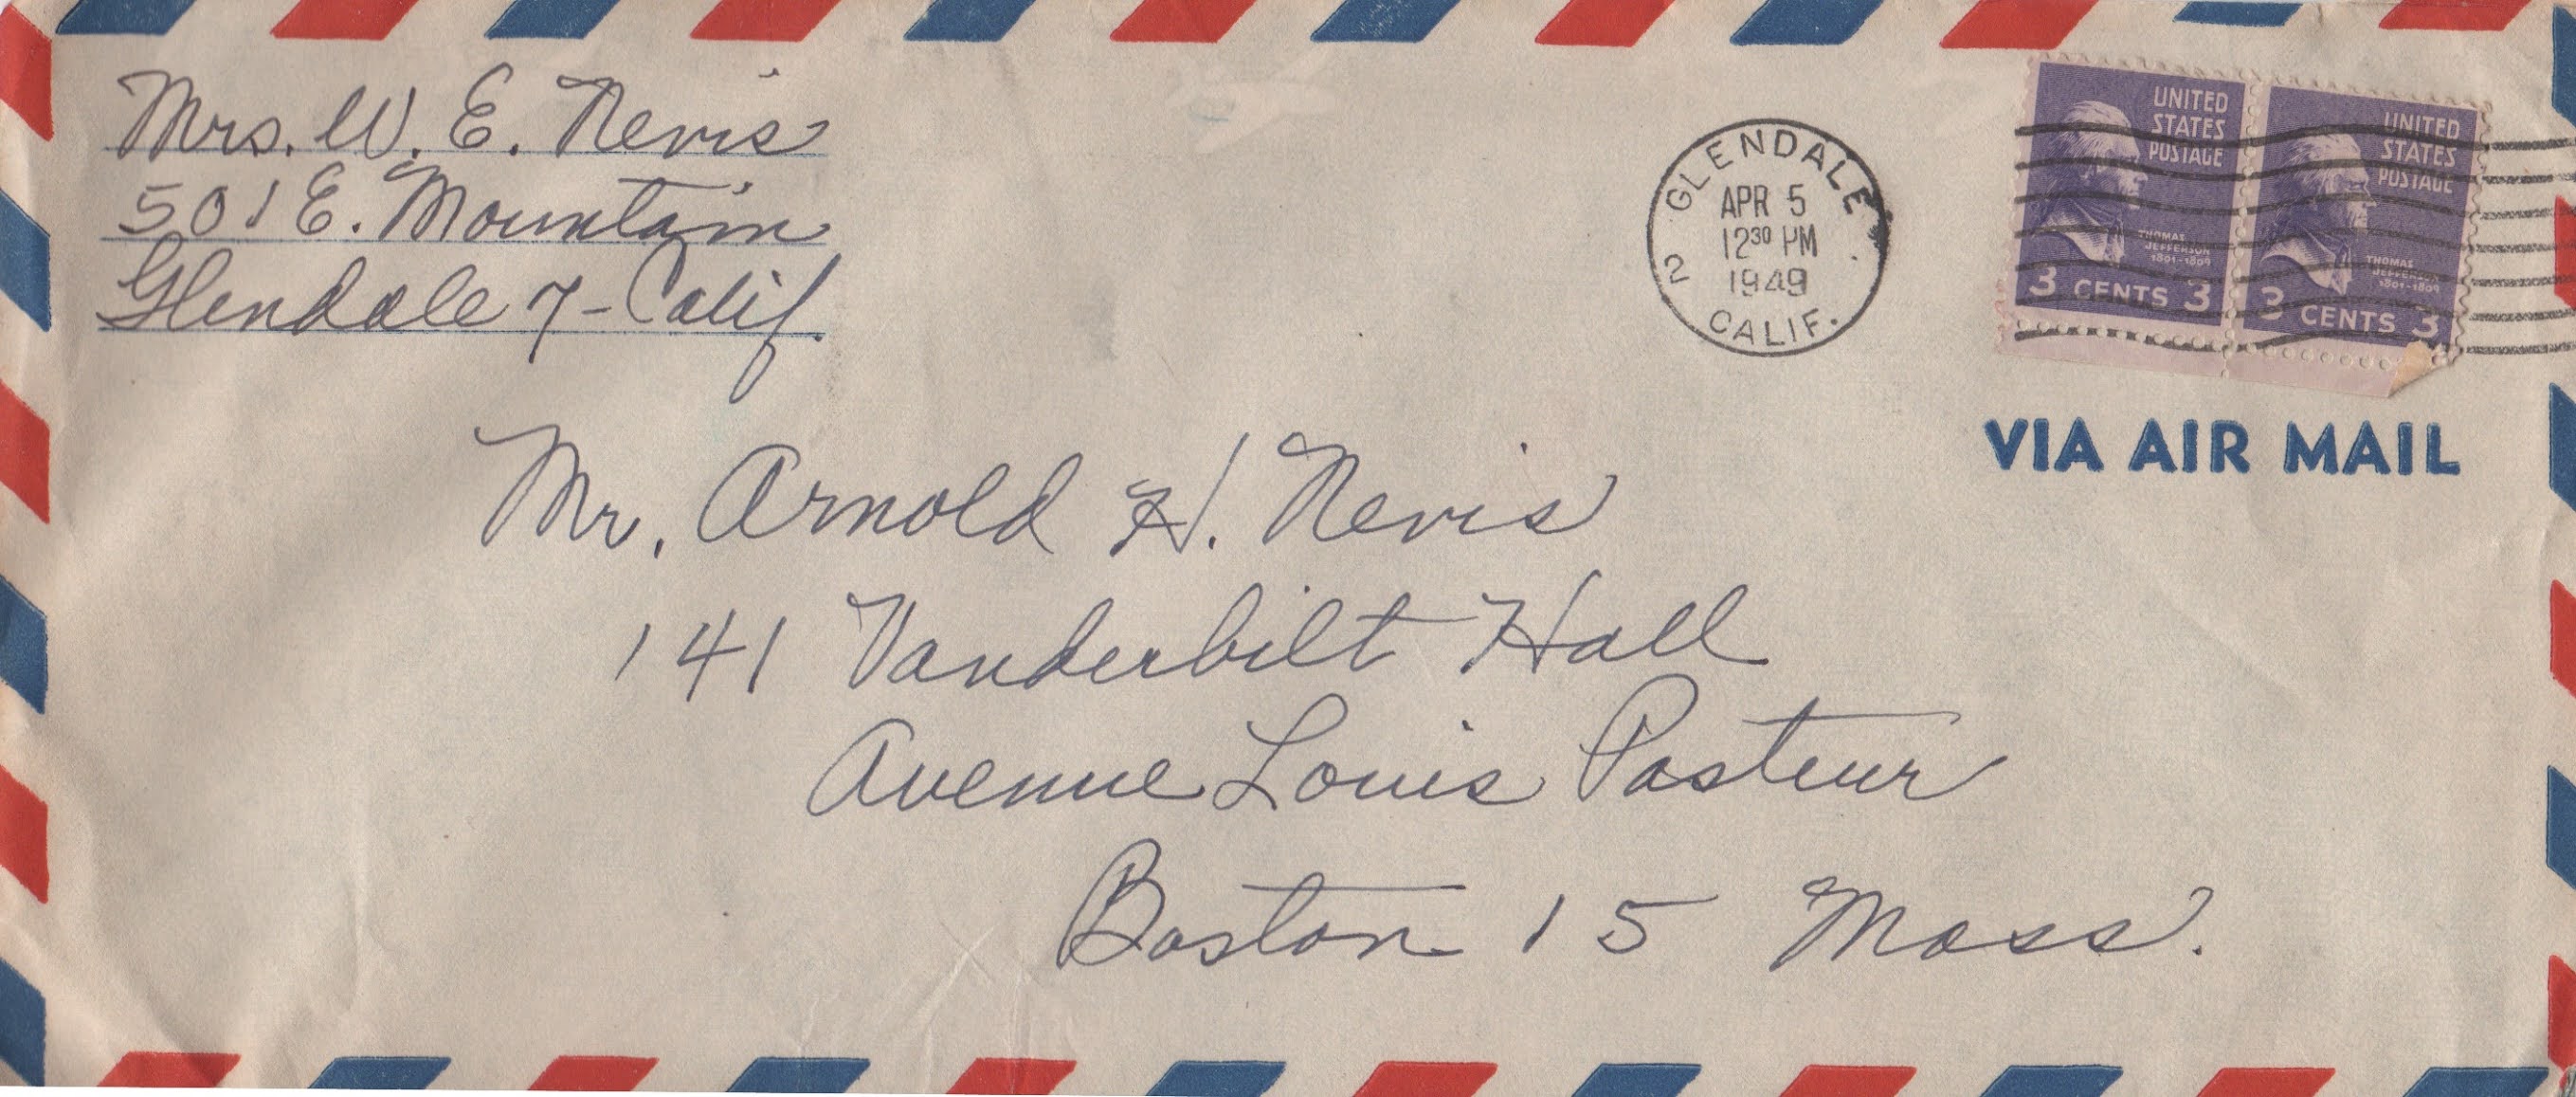 Mrs. W. E. Nevis
501 E. Mountain
Glendale 7 - Calif.
GLENDALE
APR 5
12 30 PM
1949
2
CALIF.
UNITED
STATES
POSTAGE
THOMAS
JEFFERSON
1801-1809
3 CENTS 3
UNITED
STATES
POSTAGE
THOMAS
JEFFERSON
1801-1809
3 CENTS 3
VIA AIR MAIL
Mr. Arnold H. Nevis
141 Vanderbilt Hall
Avenue Louis Pasteur
Boston 15 Mass.